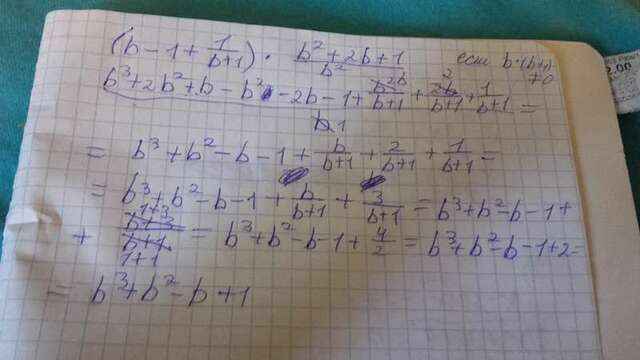 (b-1+1/(b+1)) · (b²+2b+1)/b² если b·(b+1)≠0
b³+2b²+b-b²-2b-1+b²/(b+1)+2b/(b+1)+1/(b+1)=
b 1
= b³+b²-b-1+b/(b+1)+2/(b+1)+1/(b+1)=
= b³+b²-b-1+b/(b+1)+3/(b+1)=b³+b²-b-1+
+ (1+3)/(1+1) = b³+b²-b-1+4/2=b³+b²-b-1+2=
= b³+b²-b+1
2.00